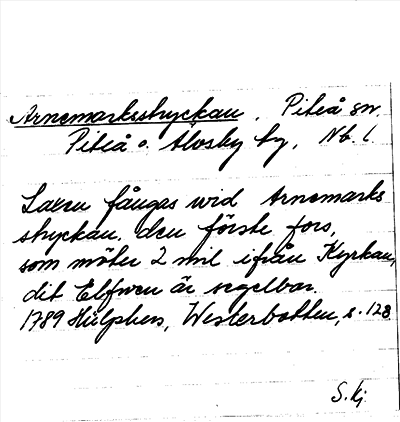 Arnemarksstryckan, Piteå sn.
Piteå o. Älvsby tg, Nb. l.
Laxen fångas wid Arnemarks
stryckan, den förste fors,
som möter 2 mil ifrån Kyrkan,
dit Elfwen är segelbar.
1789 Hülphers, Westerbotten, s. 128
S. Kj.